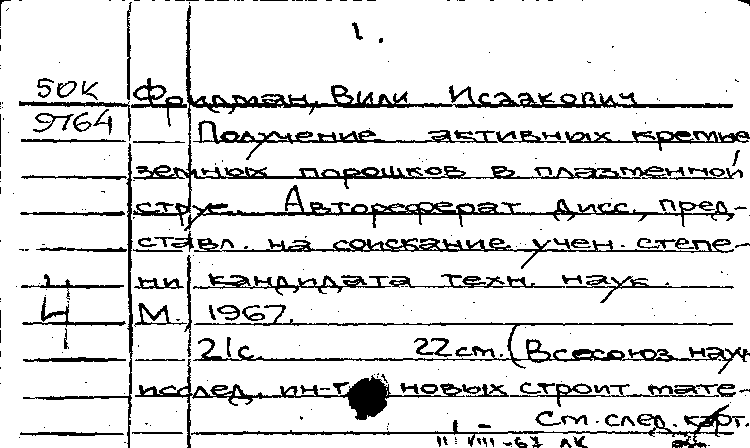 1.
50К
Фридман, Вили Исаакович
9764
Получение активных кремне
земных порошков в плазменной
струе. Автореферат дисс., пред-
ставл. на соискание учен. степе-
ни кандидата техн. наук.
4
М. 1967.
21с. 22 см. (Всесоюз науч
исслед. ин-т новых строит мате-
см. след. карт.
11 VIII -67 ЛК